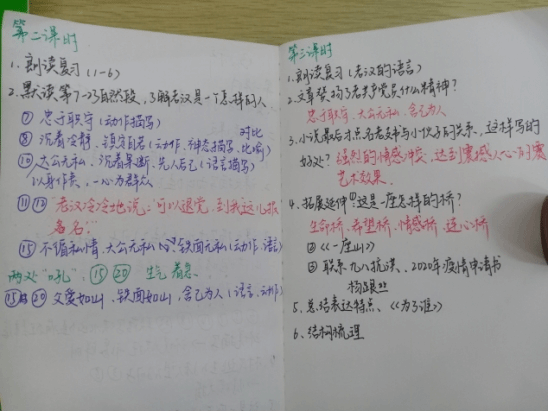 第二课时
1. 朗读复习(1-6)
2. 默读第7-23自然段,了解老汉是一个怎样的人
⑦ 忠于职守(动作描写)
⑧ 沉着冷静、镇定自若(动作、神态描写、比喻)
对比
⑩ 大公无私、沉着果断、先人后己(语言描写)
以身作责,一心为群众
⑪⑬ "老汉冷冷地说:'可以退党,到我这儿报
名。'"
⑮ 不徇私情、大公无私 铁面无私(动作 语言)
两处"吼" ⑮ ⑳ 生气 着急
⑮ ⑳ 父爱如山、铁面如山,舍己为人(语言、动作)
第三课时
1. 朗读复习(老汉的语言)
2. 文章赞扬了老共产党员什么精神?
忠于职守、大公无私、舍己为人
3. 小说最后才点名老支书与小伙子的关系,这样写的
好处? 强烈的情感冲突,达到震撼人心的
艺术效果。
4. 拓展延伸 ① 这是一座怎样的桥?
生命桥、希望桥、情感桥、连心桥
② 《一座山》
③ 联系九八抗洪、2020年疫情申请书
5. 总结表达特点、《为了谁》
6. 结构梳理